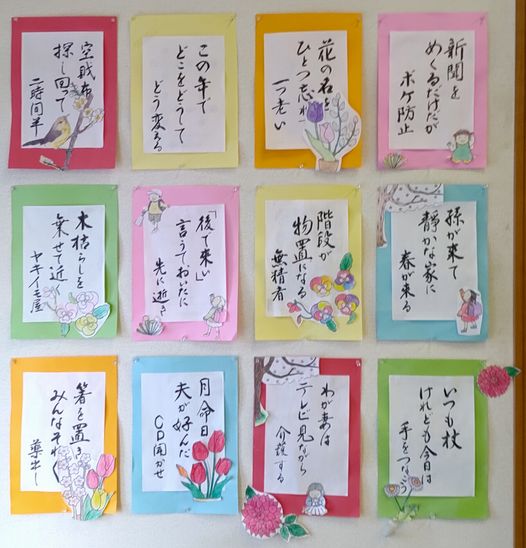 新聞を
めくるだけだが
ボケ防止
花の名を
ひとつ忘れ
一つ老い
この年で
どこをどうして
どう変える
空財布
探し回って
二時間半
孫が来て
静かな家に
春が来る
階段が
物置になる
無精者
「後で来い」
言うておいたに
先に逝き
木枯らしを
乗せて近く
ヤキイモ屋
いつも杖
けれども今日は
手をつなぐ
わが妻は
テレビ見ながら
介護する
月命日
夫が好んだ
CD聞かせ
箸を置き
みんなそれ〲
薬出し